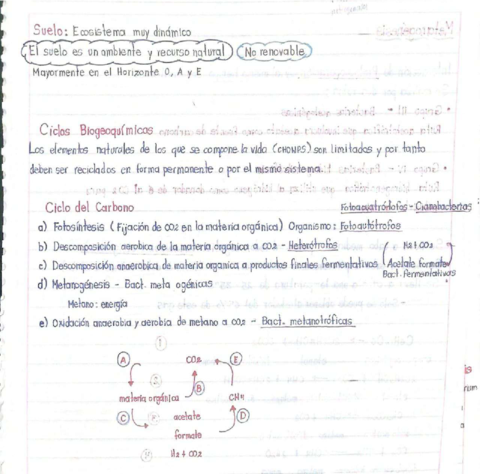 Suelo: Ecosistema muy dinámico
El suelo es un ambiente y recurso natural No renovable
Mayormente en el Horizonte O, A y E
Ciclos Biogeoquímicos
Los elementos naturales de los que se compone la vida (CHONPS) son limitados y por tanto
deben ser reciclados en forma permanente o por el mismo sistema.
Ciclo del Carbono
Fotoauatrótofos - Cianobacterias
a) Fotosíntesis (Fijación de CO2 en la materia orgánica) Organismo: Fotoautótrofos
b) Descomposición aerobica de la materia orgánica a CO2 - Heterótrofos
H2 + CO2
c) Descomposición anaerobica de materia organica a productos finales fermentativos (Acetate formate
Bact. fermentativas
d) Metanogénesis - Bact. meta ogénicas
Metano: energía
e) Oxidación anaerobia y aerobia de metano a CO2 - Bact. metanotróficas
A CO2 E
B
materia orgánica CH4
C acetate D
formate
H2 + CO2